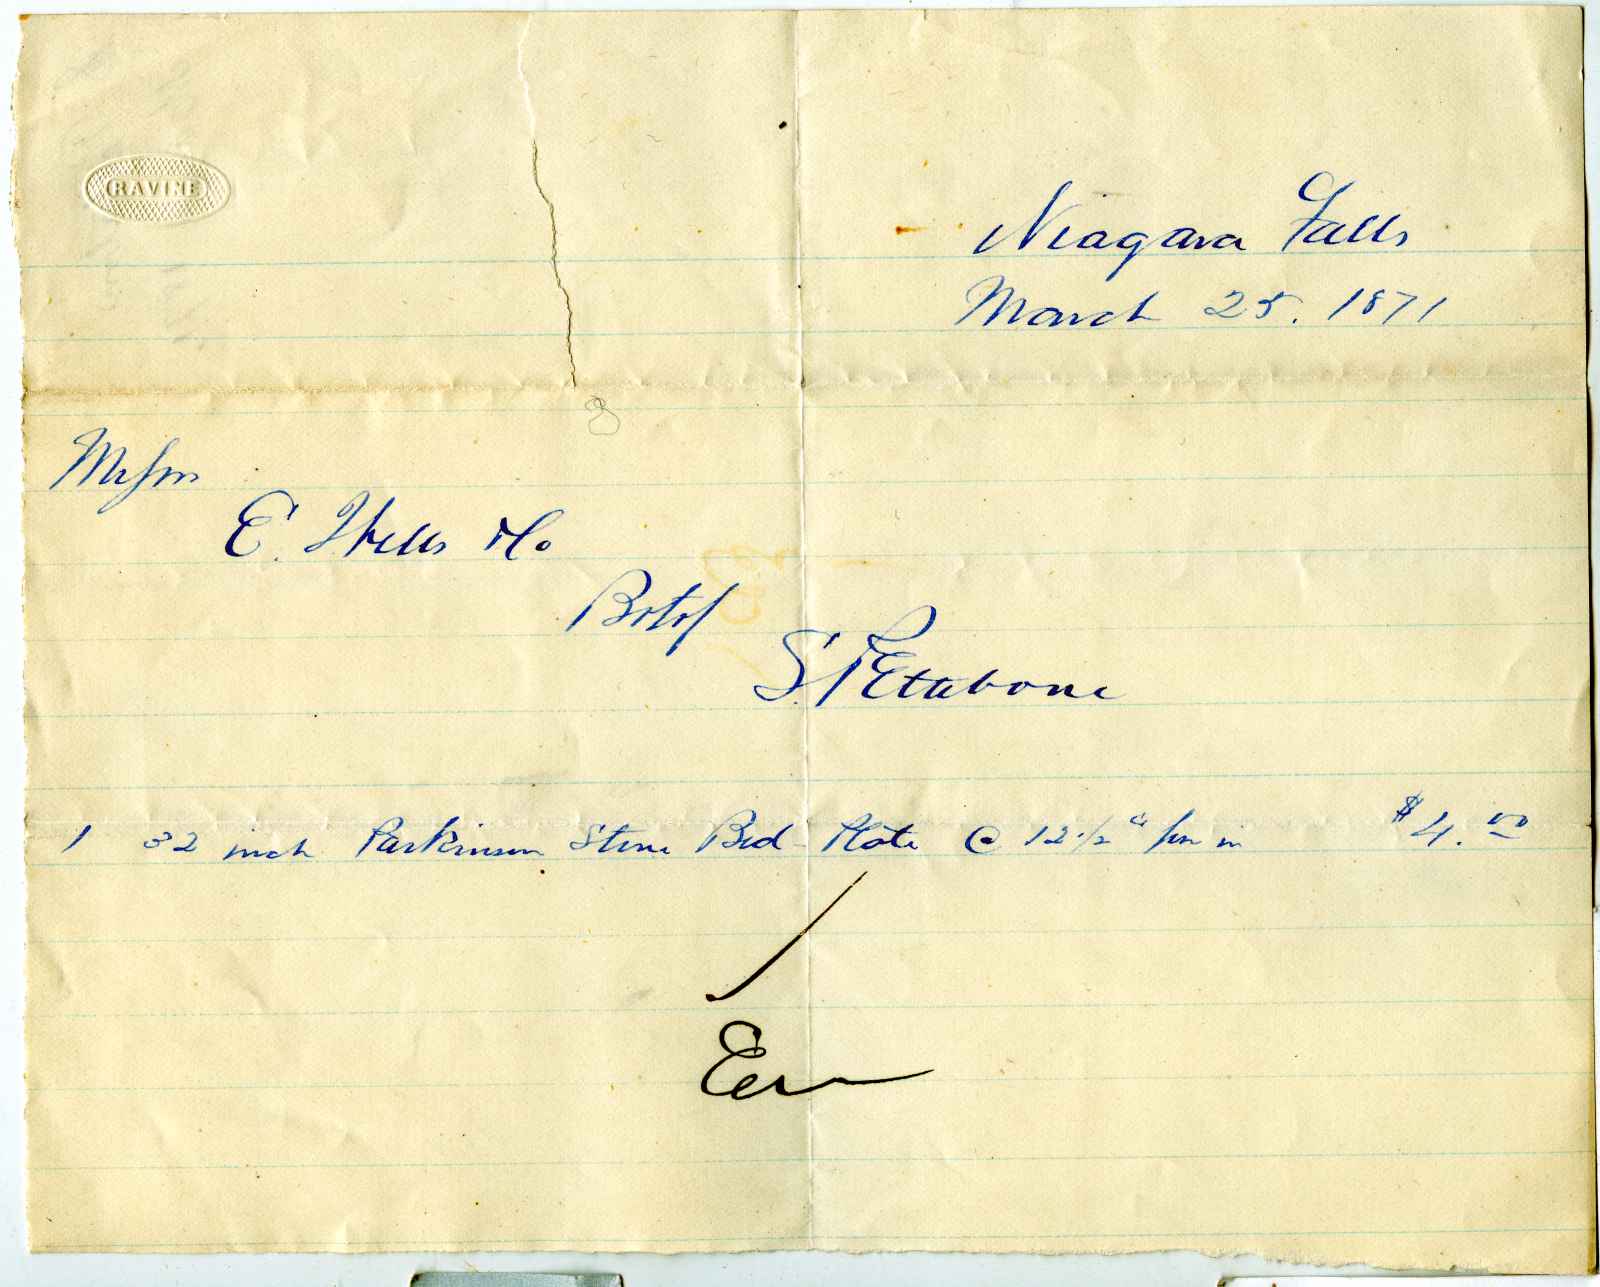 RAVINE
Niagara Falls
March 25. 1871
Messrs
E. Wells & Co
Bot of
S. Pettebone
1 32 inch Parkinson Stone Bed-Plate @ 12 1/2 " per in $4.00